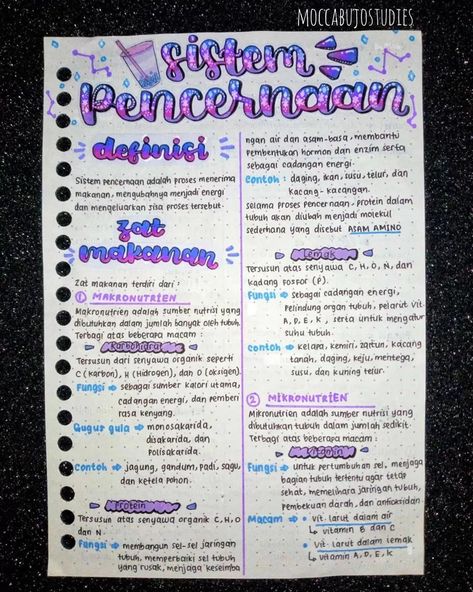 MOCCABUJOSTUDIES
Sistem
Pencernaan
definisi
Sistem pencernaan adalah proses menerima
makanan, mengubahnya menjadi energi
dan mengeluarkan sisa proses tersebut.
zat
makanan
Zat makanan terdiri dari :
① MAKRONUTRIEN
Makronutrien adalah sumber nutrisi yang
dibutuhkan dalam jumlah banyak oleh tubuh.
Terbagi atas beberapa macam :
Karbohidrat
Tersusun dari senyawa organik seperti
C (karbon), H (Hidrogen), dan O (oksigen).
Fungsi → sebagai sumber kalori utama,
cadangan energi, dan pemberi
rasa kenyang.
Gugus gula → monosakarida,
disakarida, dan
Polisakarida.
Contoh → jagung, gandum, padi, sagu,
dan ketela pohon.
Protein
Tersusun atas senyawa organik C, H, O
dan N.
Fungsi → membangun sel-sel jaringan
tubuh, memperbaiki sel tubuh
yang rusak, menjaga keseimba
ngan air dan asam-basa, membantu
Pembentukan hormon dan enzim serta
sebagai cadangan energi.
Contoh : daging, ikan, susu, telur, dan
kacang - kacangan.
selama proses pencernaan, protein dalam
tubuh akan diubah menjadi molekul
sederhana yang disebut ASAM AMINO
Lemak
Tersusun atas senyawa C, H, O, N, dan
kadang fosfor (P).
Fungsi → sebagai cadangan energi,
Pelindung organ tubuh, pelarut vit.
A, D, E, K, serta untuk mengatur
suhu tubuh.
Contoh → kelapa, kemiri, zaitun, kacang
tanah, daging, keju, mentega,
susu, dan kuning telur.
② MIKRONUTRIEN
Mikronutrien adalah sumber nutrisi yang
dibutuhkan tubuh dalam jumlah sedikit.
Terbagi atas beberapa macam :
Vitamin
Fungsi → untuk pertumbuhan sel, menjaga
bagian tubuh tertentu agar tetap
sehat, memelihara jaringan tubuh,
pembekuan darah, dan antioksidan
Macam → • Vit. larut dalam air
↳ vitamin B dan C
• Vit. larut dalam lemak
↳ vitamin A, D, E, K